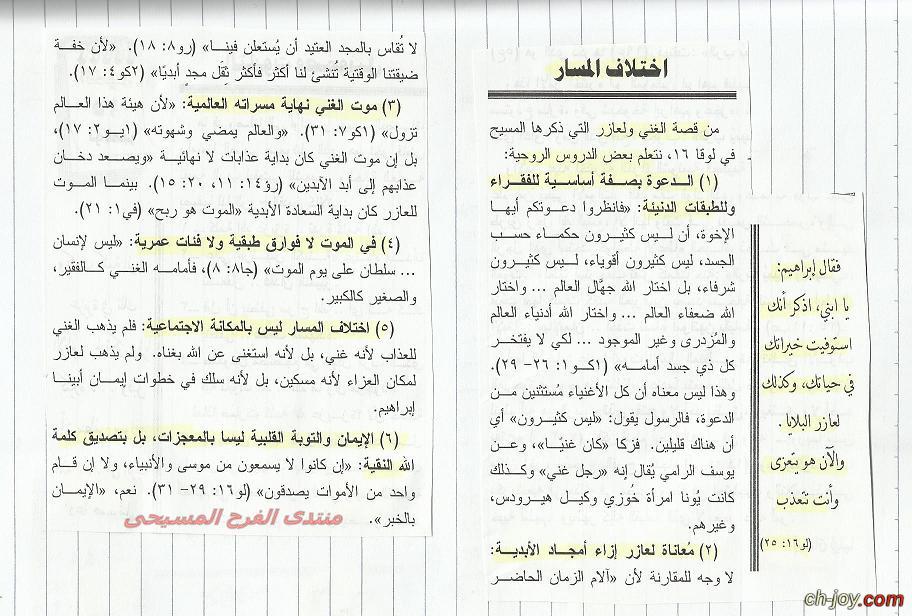 اختلاف المسار
من قصة الغني ولعازر التي ذكرها المسيح
في لوقا ١٦، نتعلم بعض الدروس الروحية:
(١) الدعوة بصفة أساسية للفقراء
وللطبقات الدنيئة: «فانظروا دعوتكم أيها
الإخوة، أن ليس كثيرون حكماء حسب
الجسد، ليس كثيرون أقوياء، ليس كثيرون
شرفاء، بل اختار الله جهَّال العالم ... واختار
الله ضعفاء العالم ... واختار الله أدنياء العالم
والمُزدرى وغير الموجود ... لكي لا يفتخر
كل ذي جسد أمامه» (١كو١: ٢٦- ٢٩).
وهذا ليس معناه أن كل الأغنياء مُستثنين من
الدعوة، فالرسول يقول: «ليس كثيرون» أي
أن هناك قليلين. فزكا «كان غنيًا»، وعن
يوسف الرامي يُقال إنه «رجل غني» وكذلك
كانت يُونا امرأة خُوزي وكيل هيرودس،
وغيرهم.
(٢) مُعاناة لعازر إزاء أمجاد الأبدية:
لا وجه للمقارنة لأن «آلام الزمان الحاضر
فقال إبراهيم:
يا ابني، اذكر أنك
استوفيت خيراتك
في حياتك، وكذلك
لعازر البلايا.
والآن هو يتعزى
وأنت تتعذب
(لو١٦: ٢٥)
لا تُقاس بالمجد العتيد أن يُستعلن فينا» (رو٨: ١٨). «لأن خفة
ضيقتنا الوقتية تُنشئ لنا أكثر فأكثر ثِقَل مجدٍ أبديًا» (٢كو٤: ١٧).
(٣) موت الغني نهاية مسراته العالمية: «لأن هيئة هذا العالم
تزول» (١كو٧: ٣١). «والعالم يمضي وشهوته» (١يو٢: ١٧)،
بل إن موت الغني كان بداية عذابات لا نهائية «ويصعد دخان
عذابهم إلى أبد الآبدين» (رؤ١٤: ١١، ٢٠: ١٥). بينما الموت
للعازر كان بداية السعادة الأبدية «الموت هو ربح» (في١: ٢١).
(٤) في الموت لا فوارق طبقية ولا فئات عمرية: «ليس لإنسان
... سلطان على يوم الموت» (جا٨: ٨)، فأمامه الغني كالفقير،
والصغير كالكبير.
(٥) اختلاف المسار ليس بالمكانة الاجتماعية: فلم يذهب الغني
للعذاب لأنه غني، بل لأنه استغنى عن الله بغناه. ولم يذهب لعازر
لمكان العزاء لأنه مسكين، بل لأنه سلك في خطوات إيمان أبينا
إبراهيم.
(٦) الإيمان والتوبة القلبية ليسا بالمعجزات، بل بتصديق كلمة
الله النقية: «إن كانوا لا يسمعون من موسى والأنبياء، ولا إن قام
واحد من الأموات يصدقون» (لو١٦: ٢٩- ٣١). نعم، «الإيمان
بالخبر».
منتدى الفرح المسيحى
ch-joy.com